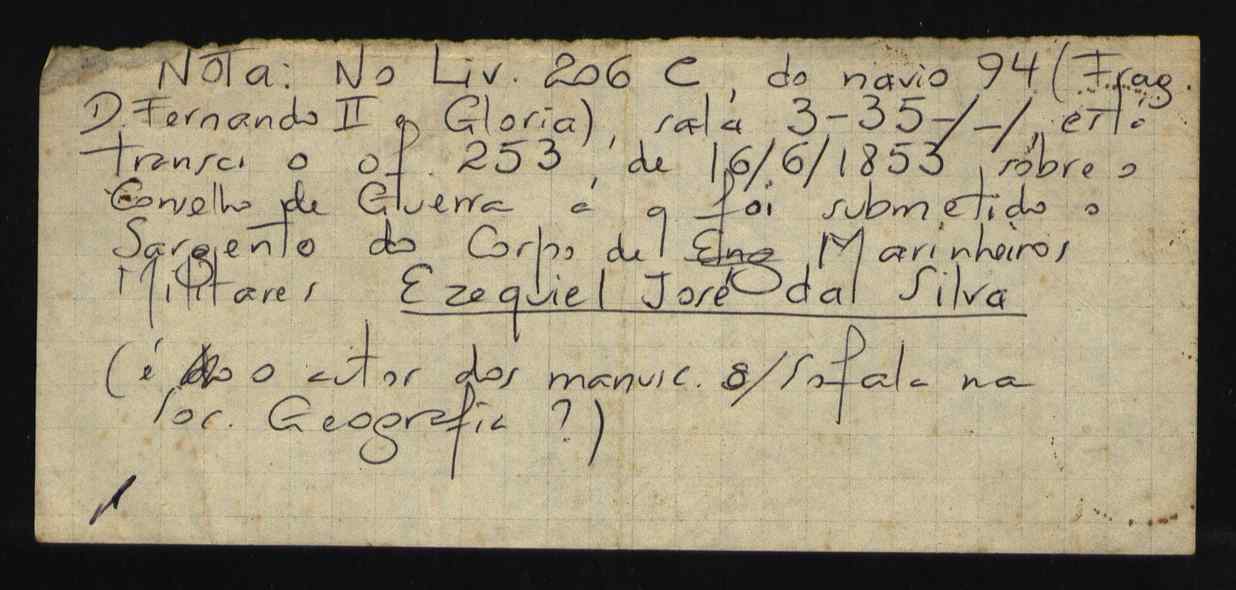 Nota: No Liv. 206 C, do navio 94 (Frag.
D. Fernando II e Gloria), sala 3-35-/-/, está
transcr. o of. 253, de 16/6/1853 sobre o
Conselho de Guerra a q foi submetido o
Sargento do Corpo de Marinheiros
Militares Ezequiel José da Silva
(é o autor dos manusc. s/ Sofala na
Soc. Geografia ?)